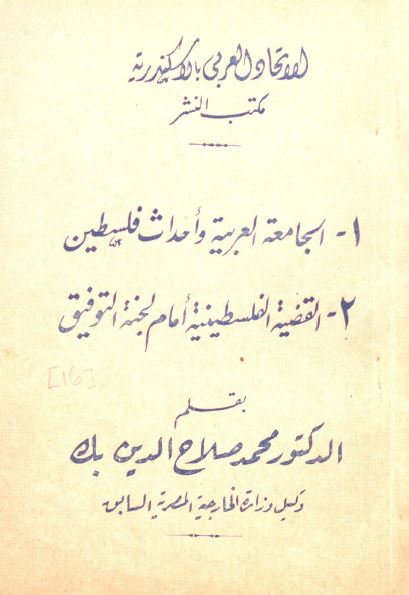 الاتحاد العربي بالاسكندرية
مكتب النشر
١- الجامعة العربية وأحداث فلسطين
٢- القضية الفلسطينية أمام لجنة التوفيق
[16]
بقلم
الدكتور محمد صلاح الدين بك
وكيل وزارة الخارجية المصرية السابق